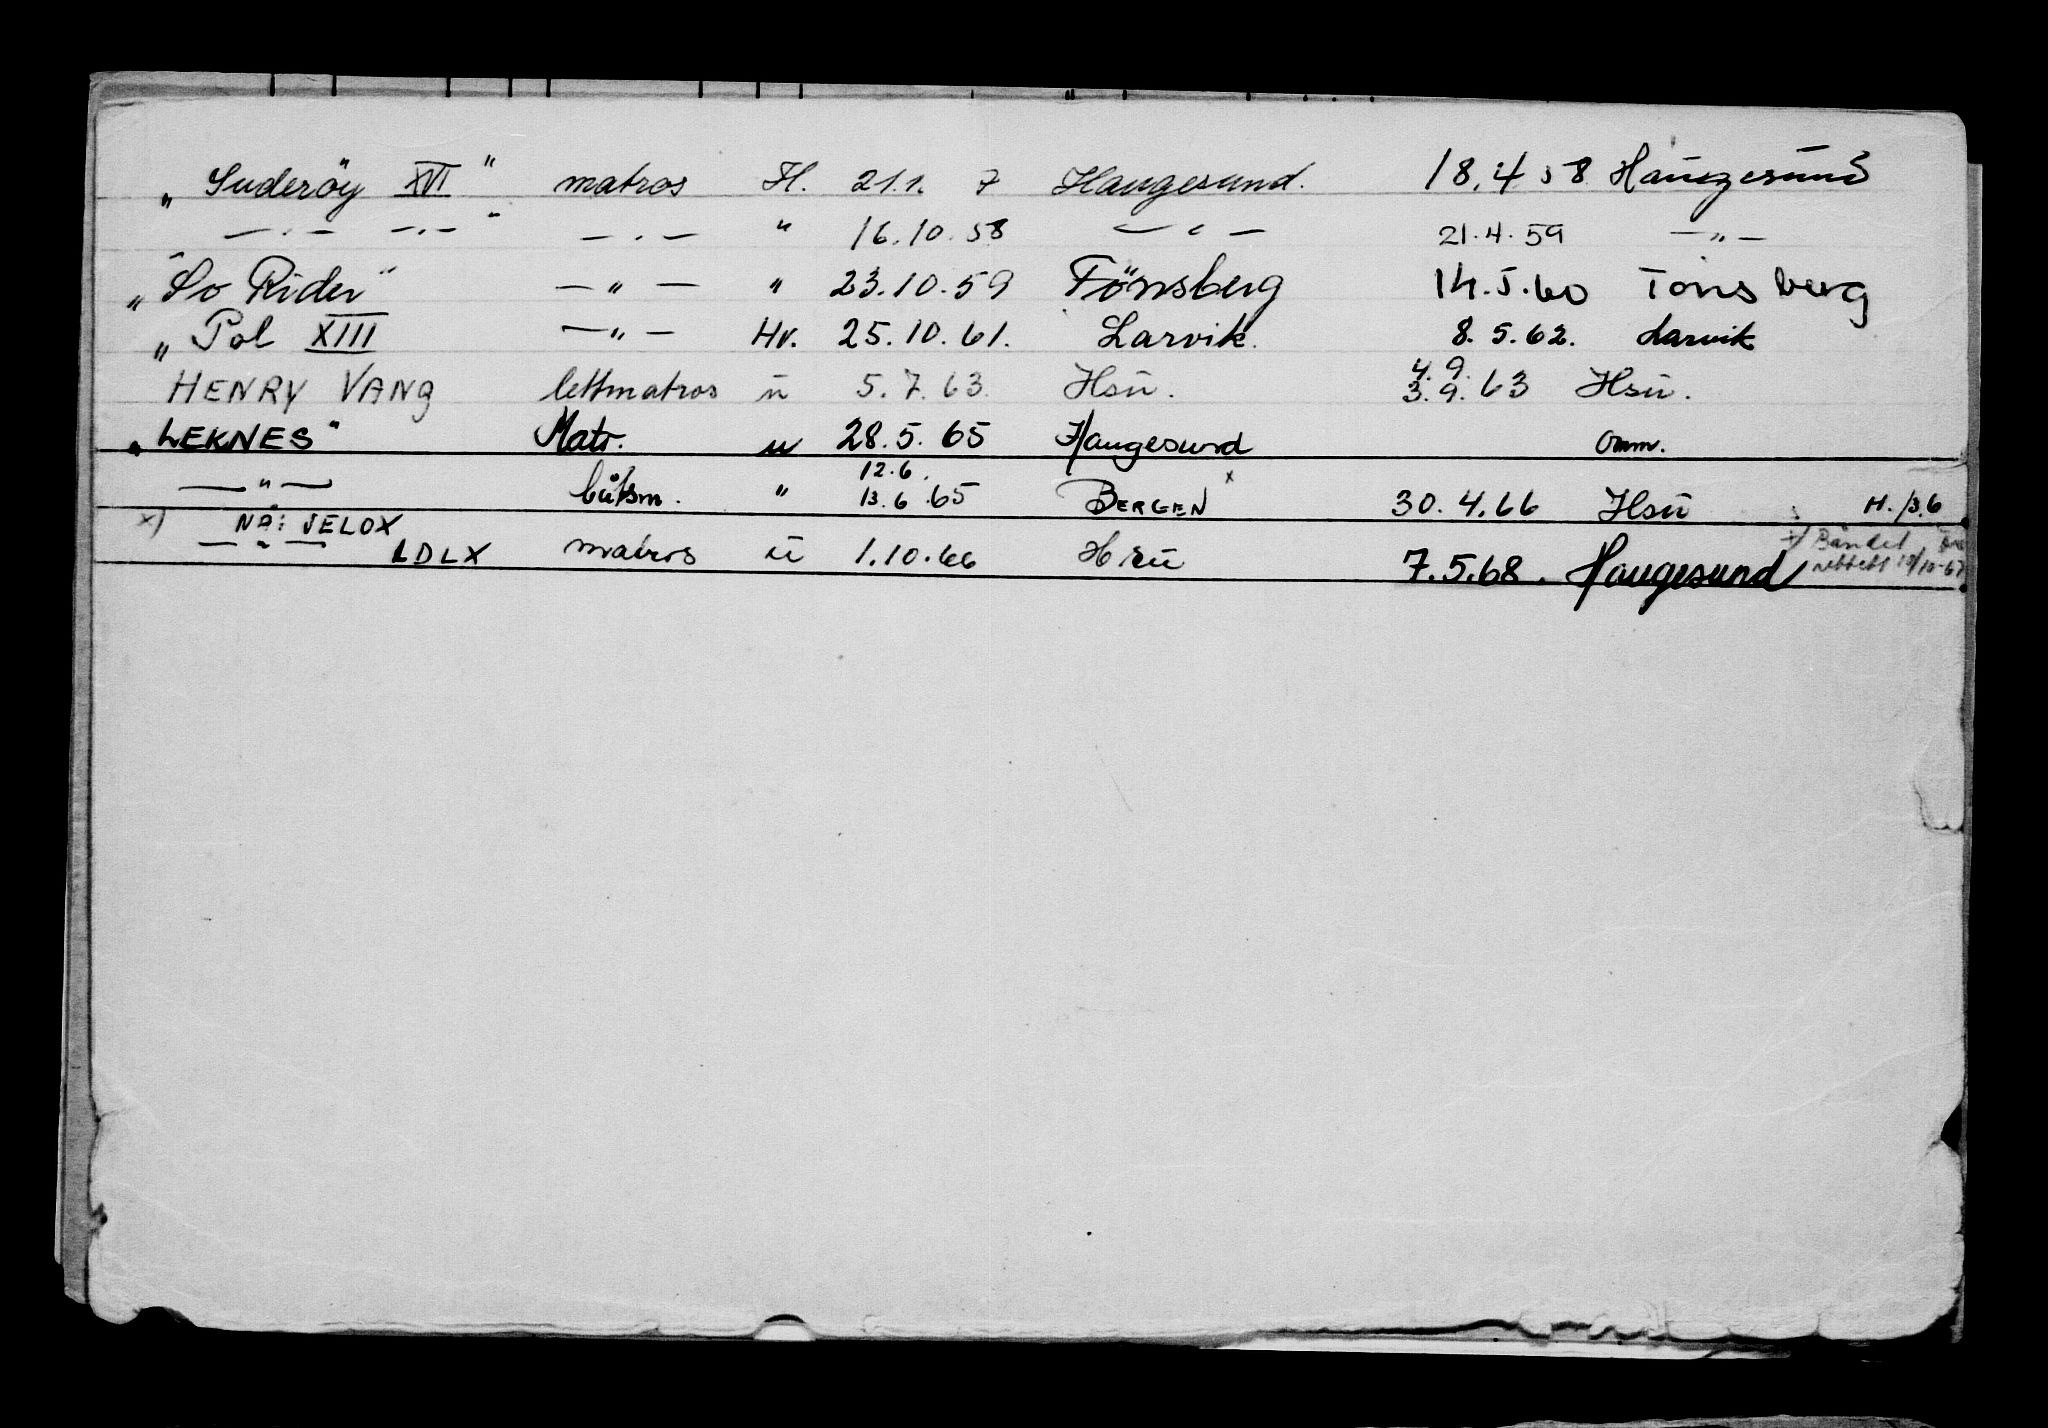 „Suderöy XVI" matros H. 21.1. 7 Haugesund. 18.4 58 Haugesund
— " — — " — " — " — " 16.10.58 — " — 21.4.59 — " —
„So Rider" — " — " 23.10.59 Tönsberg 14.5.60 Tönsberg
„Pol XIII — " — Hv. 25.10.61. Larvik. 8.5.62. Larvik
HENRY VANG lettmatros u 5.7.63. Hsu. 4.9. 3.9.63 Hsu.
„LEKNES" Matr. u 28.5.65 Haugesund Omm.
— " — båtsm. " 12.6. 13.6.65 BERGEN x 30.4.66 Hsu H. 13.6
x) NÅ: JELOX
— " — LDLX matros u 1.10.66 Hsu 7.5.68. Haugesund